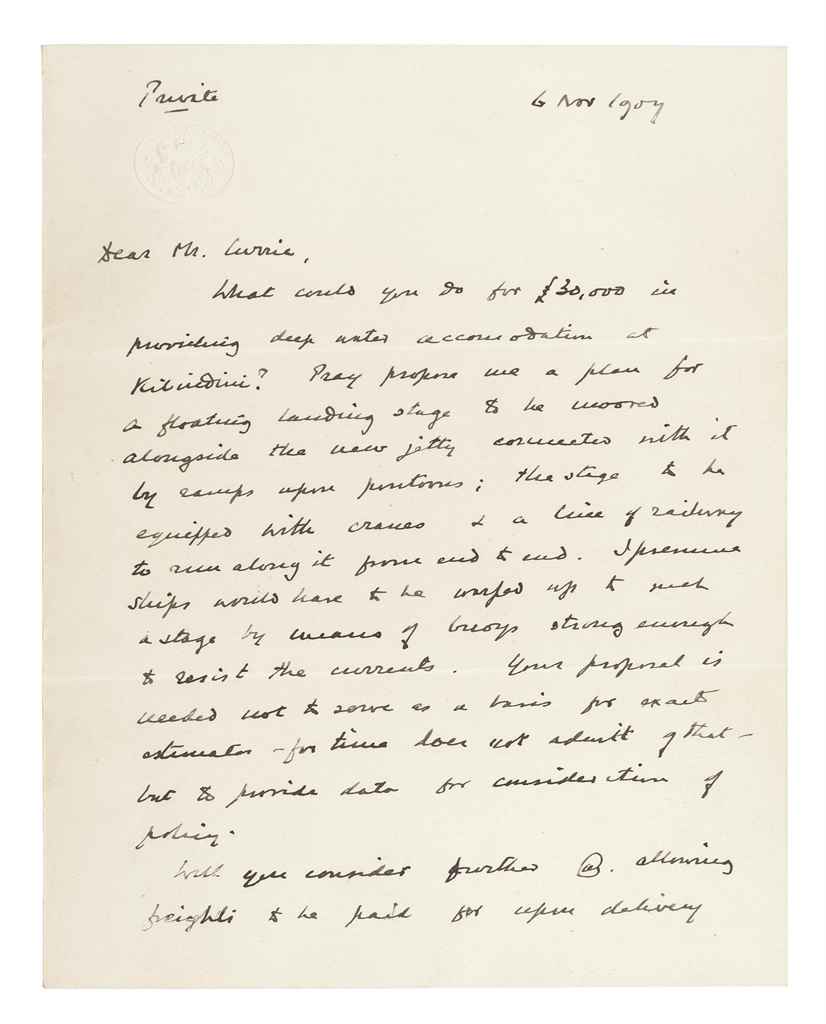 Private
6 Nov 1907
Dear Mr. Currie,
What could you do for £30,000 in
providing deep water accomodation at
Kilindini? Pray propose me a plan for
a floating landing stage to be moored
alongside the new jetty connected with it
by ramps upon pontoons; the stage to be
equipped with cranes & a line of railway
to run along it from end to end. I presume
ships would have to be warped up to such
a stage by means of buoys strong enough
to resist the currents. Your proposal is
needed not to serve as a basis for exact
estimates – for time does not admit of that –
but to provide data for consideration of
policy.
Will you consider further (a). allowing
freights to be paid for upon delivery